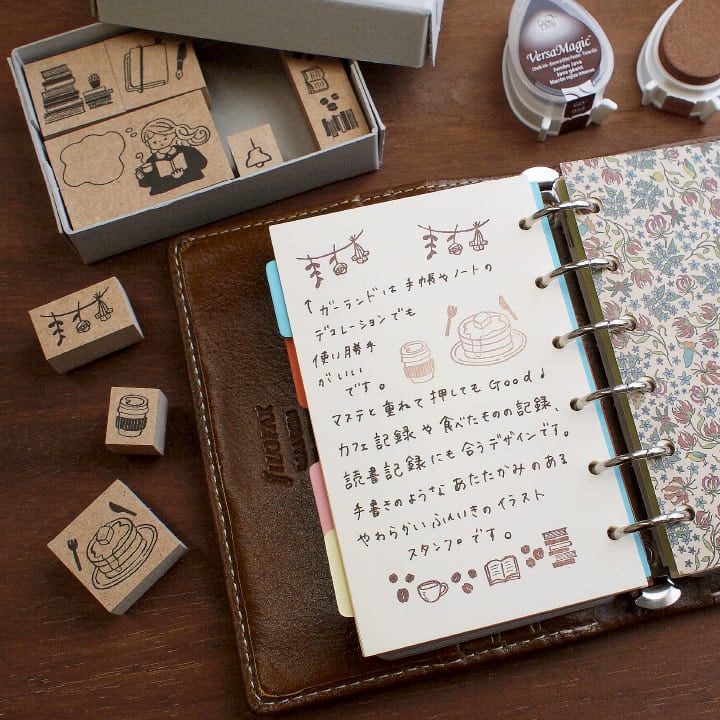 VersaMagic
↑ ガーランドは 手帳や ノートの
デコレーションでも
使い勝手
がいい
です。
マステと重ねて押しても Good♪
カフェ記録や食べたものの記録、
読書記録にも合うデザインです。
手書きのような あたたかみのある
やわらかいふんいきのイラスト
スタンプです。